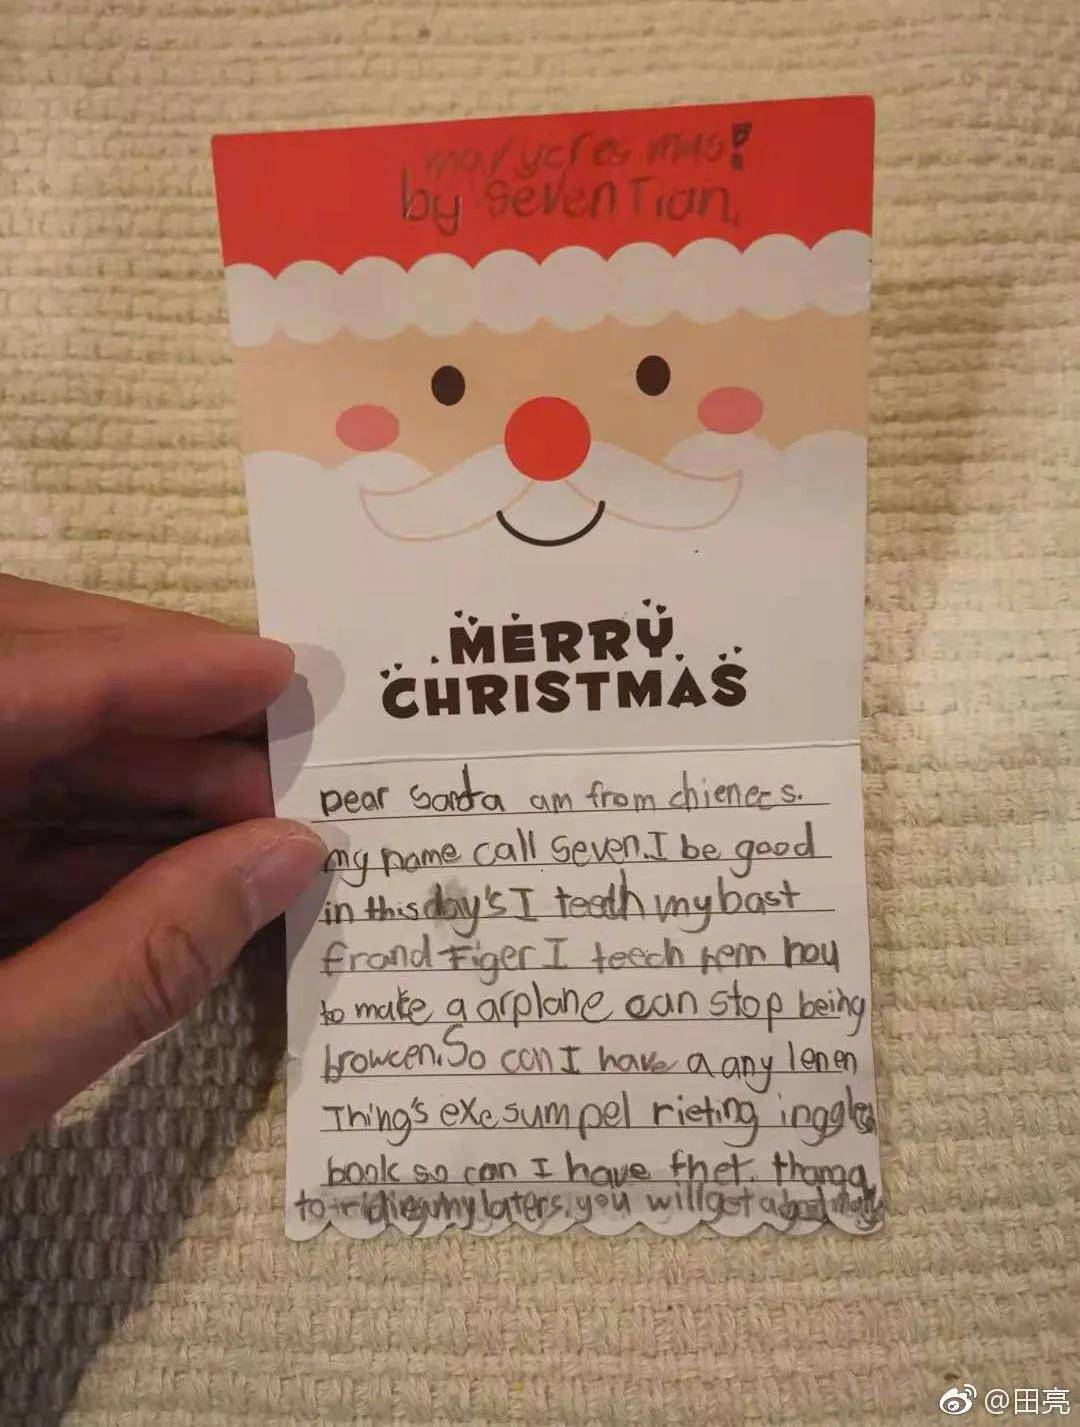 mary cres mus!
by Seven Tian.
MERRY
CHRISTMAS
Dear Santa am from chienees.
my name call Seven. I be good
in this day's I teeth my bast
frand Figer I teech hem hou
to make a arplane can stop being
browcen. So can I have a any lenen
Thing's exe sum pel rieting inggles
book so can I have thet. thanga
to my laters. you will get a
@田亮